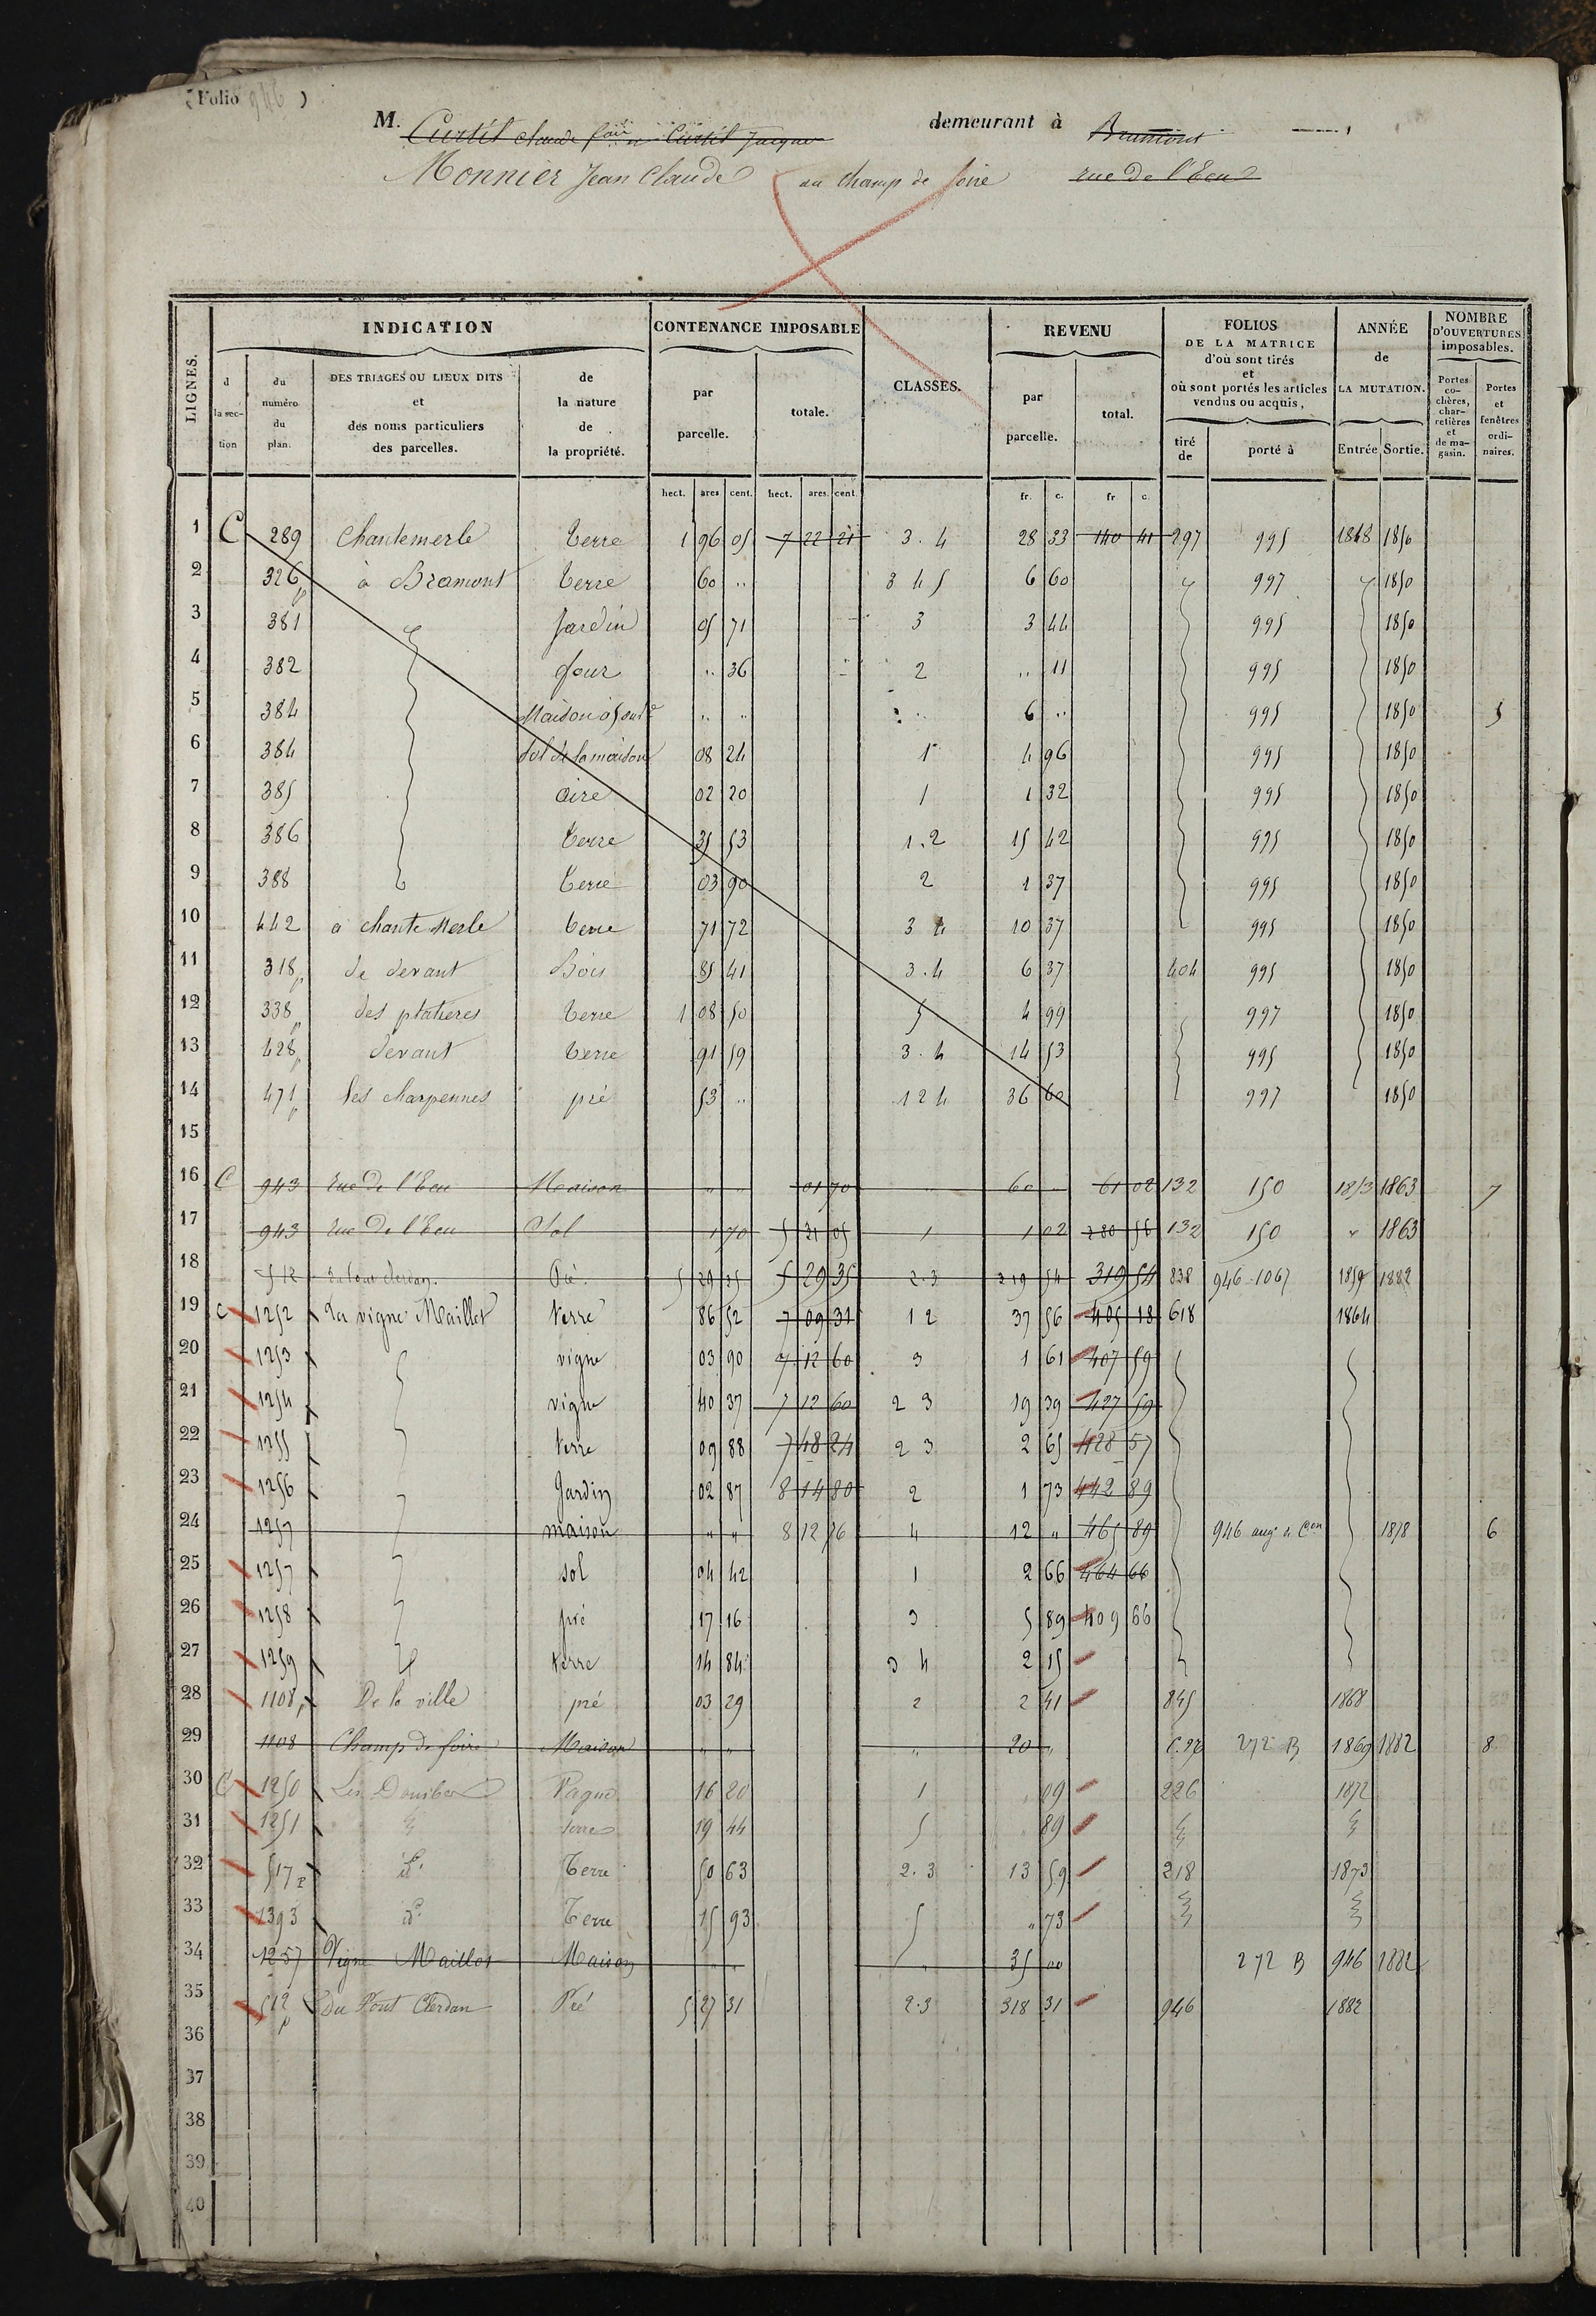 (Folio 946)
M. Curtil Claude Curtil Jacques demeurant à Bramont
Monnier Jean Claude au champ de foire rue de l'Ecu
LIGNES. INDICATION CONTENANCE IMPOSABLE CLASSES. REVENU FOLIOS DE LA MATRICE d'où sont tirés et où sont portés les articles vendus ou acquis, ANNÉE de LA MUTATION. NOMBRE D'OUVERTURES imposables.
d la sec-tion du numéro du plan. DES TRIAGES OU LIEUX DITS et des noms particuliers des parcelles. de la nature de la propriété. par parcelle. totale. par parcelle. total. tiré de porté à Entrée Sortie. Portes co-chères, char-retières et de ma-gasin. Portes et fenêtres ordi-naires.
hect. ares cent. hect. ares. cent. fr. c. fr c.
1 C 289 Chantemerle terre 1 96 05 7 22 21 3.4 28 33 140 41 297 995 1848 1850
2 326 p à Bramont terre 60 .. 3 4 5 6 60 997 1850
3 381 Jardin 05 71 3 3 44 995 1850
4 382 four .. 36 2 .. 11 995 1850
5 384 Maison .. .. .. 6 .. 995 1850 5
6 384 Sol de la maison 08 24 1 4 96 995 1850
7 385 aire 02 20 1 1 32 995 1850
8 386 terre 35 53 1.2 15 42 995 1850
9 388 terre 03 90 2 1 37 995 1850
10 442 à chante Merle terre 71 72 3 4 10 37 995 1850
11 318 p de devant Bois 85 41 3.4 6 37 404 995 1850
12 338 p des platières terre 1 08 50 5 4 99 997 1850
13 428 p devant terre 91 59 3.4 14 53 995 1850
14 471 p les charpennes pré 53 .. 1 2 4 36 60 997 1850
15
16 C 943 rue de l'Ecu Maison " " 01 70 " 60 " 61 02 132 150 1853 1863 7
17 943 rue de l'Ecu Sol 1 70 5 31 05 1 1 02 280 56 132 150 " 1863
18 512 Pré 5 29 35 5 29 35 2.3 319 54 319 54 838 946-1067 1859 1882
19 C 1252 La vigne Maillot terre 86 52 7 09 31 1 2 37 56 405 18 618 1864
20 1253 vigne 03 90 7 12 60 3 1 61 407 59
21 1254 vigne 40 37 7 12 60 2 3 19 39 427 59
22 1255 terre 09 88 7 48 24 2 3 2 65 428 57
23 1256 Jardin 02 87 8 14 80 2 1 73 442 89
24 1257 maison " " 8 12 76 4 12 " 465 89 946 aug. de Con 1878 6
25 1257 sol 04 42 1 2 66 464 66
26 1258 pré 17 16 3 5 89 409 66
27 1259 terre 14 84 3 4 2 15
28 1108 p De la ville pré 03 29 2 2 41 845 1868
29 1108 Champ de foire Maison " " " 20 " 272 B 1869 1882 8
30 C 1250 Les Dombes 16 20 1 09 226 1872
31 1251 terre 19 44 5 89
32 517 d° Terre 50 63 2.3 13 59 218 1873
33 1393 d° Terre 15 93 5 " 73
34 1257 Vigne Maillot Maison " " " 35 00 272 B 946 1882
35 512 p Du Pont Cerdan Pré 5 27 31 2.3 318 31 946 1882
36
37
38
39
40